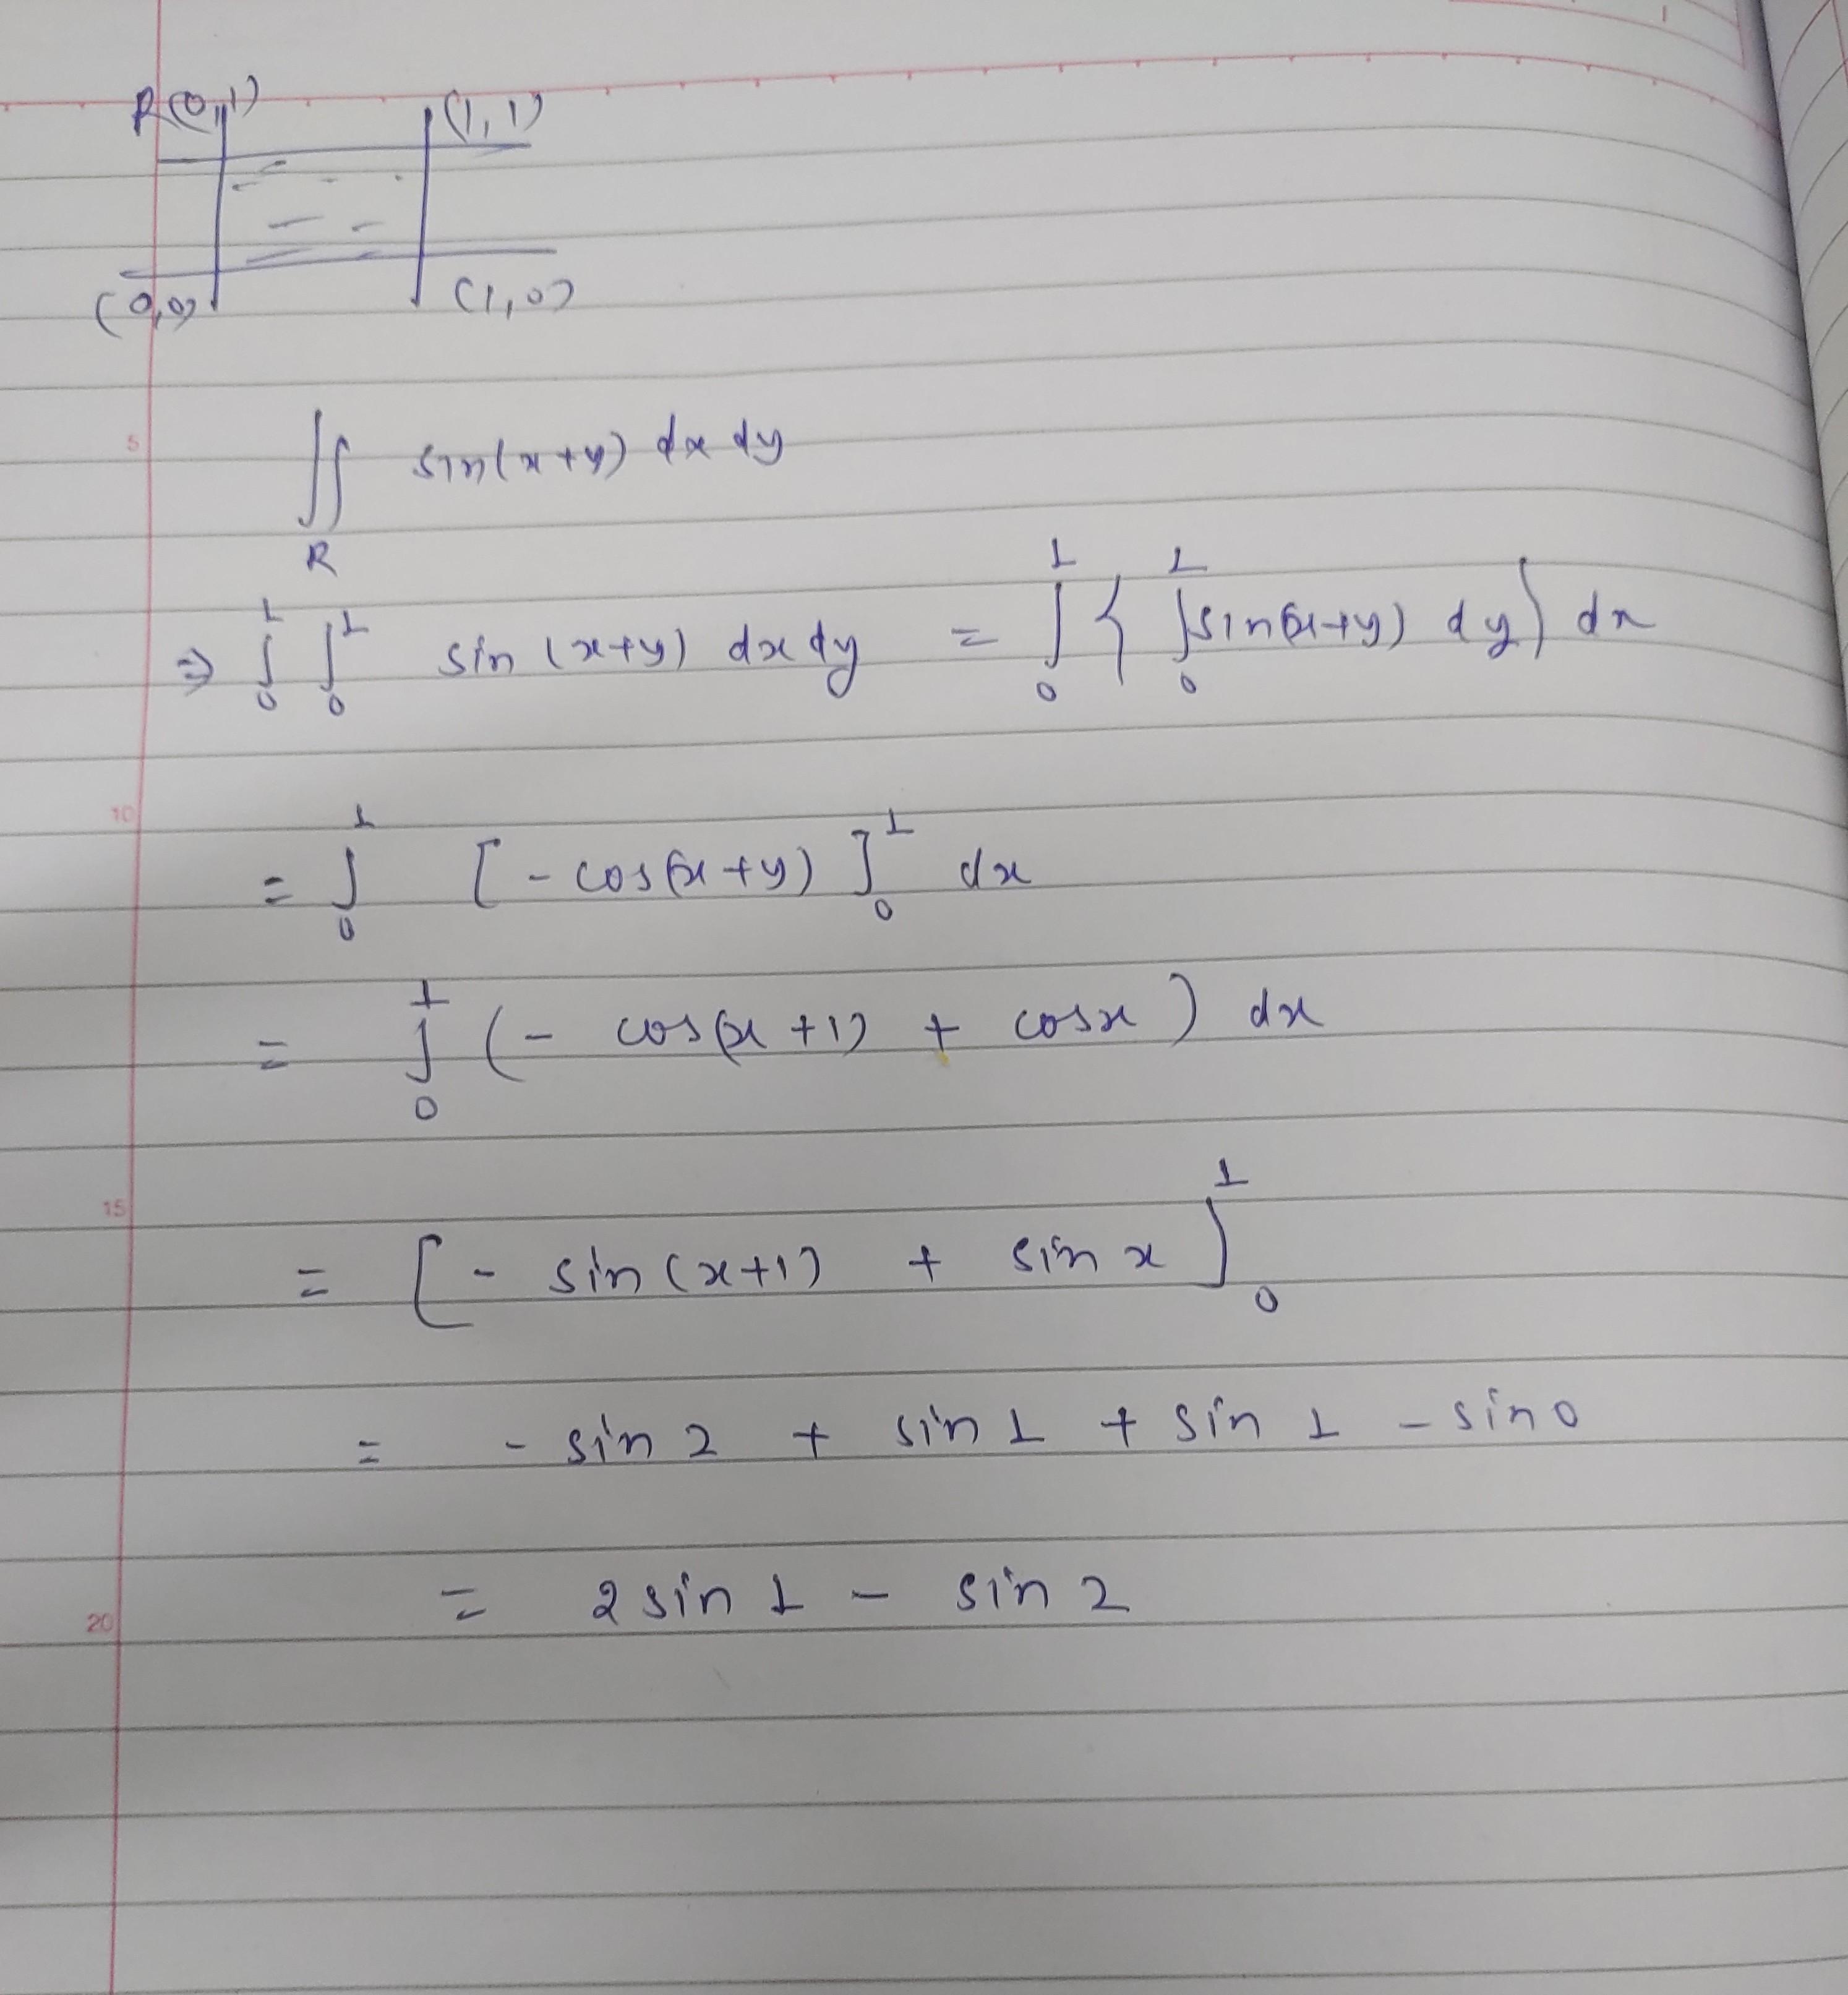 R(0,1) (1,1)
(0,0) (1,0)
5
∬ sin(x+y) dx dy
R
⇒ ∫₀¹ ∫₀¹ sin(x+y) dx dy = ∫₀¹ { ∫₀¹ sin(x+y) dy } dx
10
= ∫₀¹ [ - cos(x+y) ]₀¹ dx
= ∫₀¹ ( - cos(x+1) + cosx ) dx
15
= [ - sin(x+1) + sin x ]₀¹
= - sin 2 + sin 1 + sin 1 - sin 0
= 2 sin 1 - sin 2
20